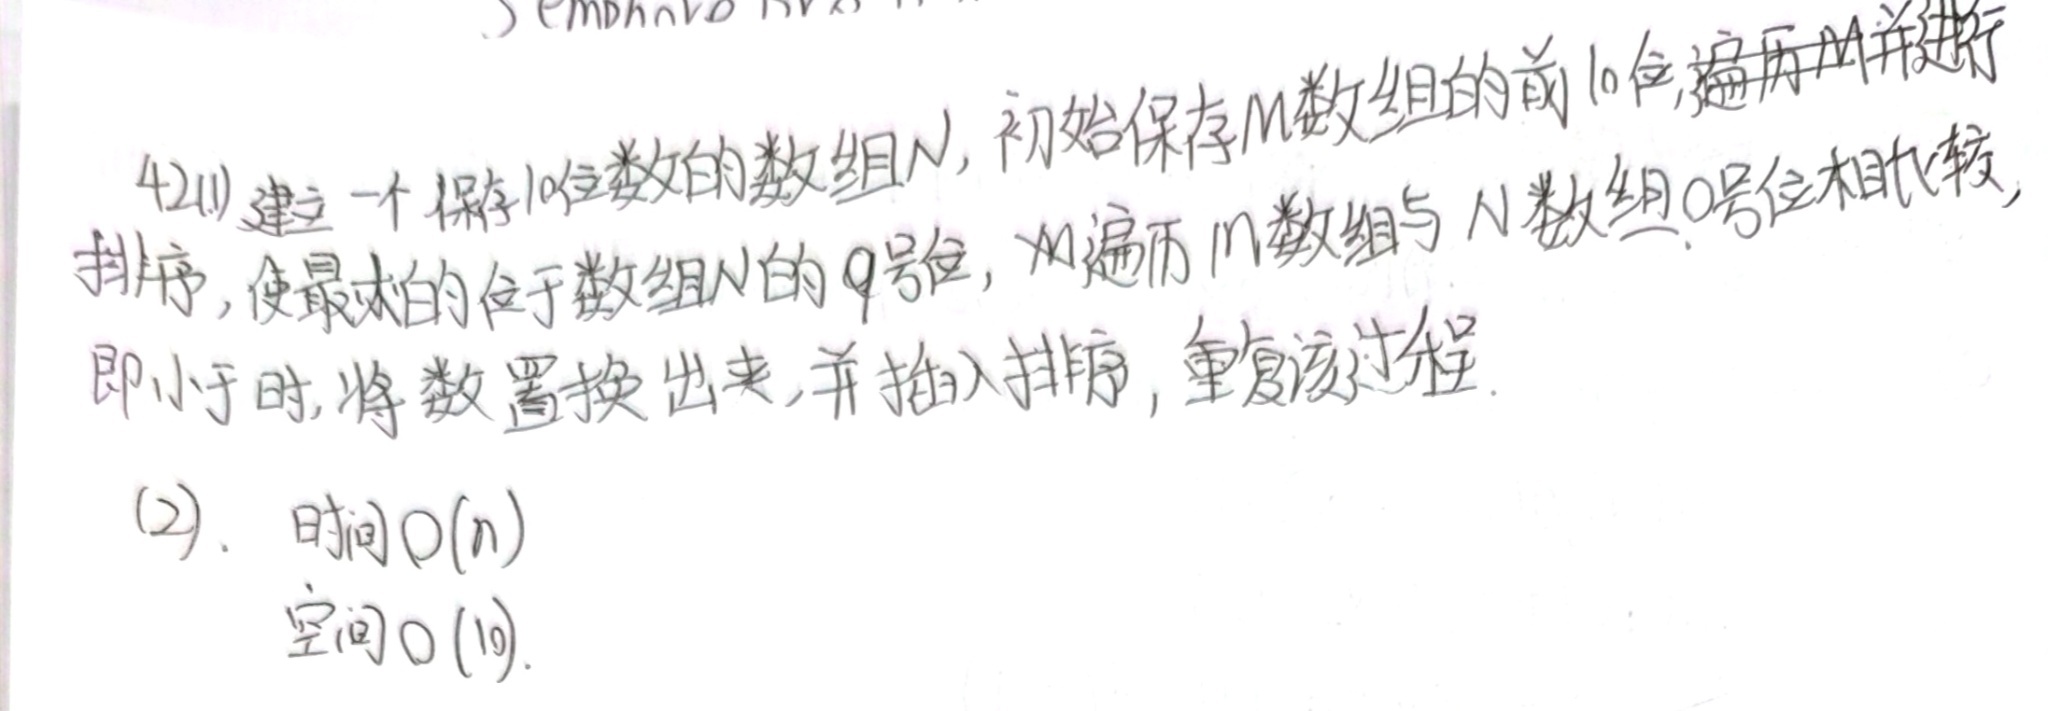 42(1)建立一个保存10位数的数组N,初始保存M数组的前10位,遍历M并进行
排序,使最大的位于数组N的9号位,遍历M数组与N数组0号位相比较,
即小于时,将数置换出来,并插入排序,重复该过程.
(2). 时间O(n)
空间O(10).